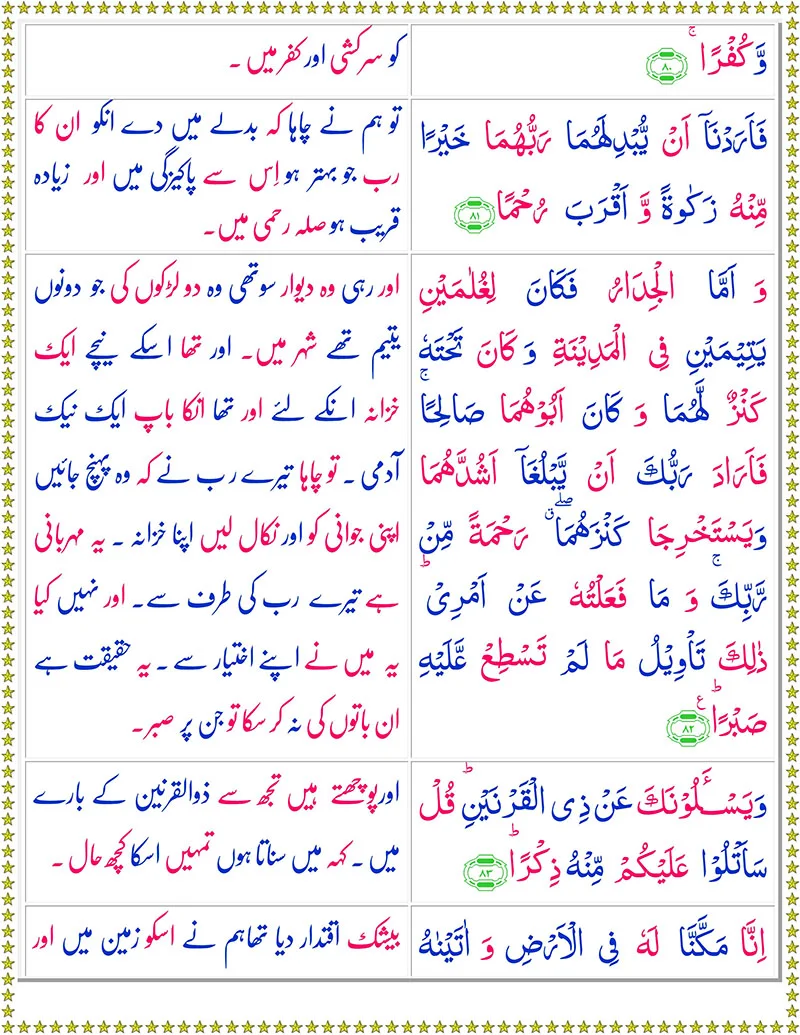 وَّ كُفْرًا ۚ ﴿۸۰﴾
کو سرکشی اور کفر میں ۔
فَاَرَدْنَآ اَنْ یُّبْدِلَهُمَا رَبُّهُمَا خَیْرًا
مِّنْهُ زَكٰوةً وَّ اَقْرَبَ رُحْمًا ﴿۸۱﴾
تو ہم نے چاہا کہ بدلے میں دے انکو ان کا
رب جو بہتر ہو اِس سے پاکیزگی میں اور زیادہ
قریب ہو صلہ رحمی میں۔
وَ اَمَّا الْجِدَارُ فَكَانَ لِغُلٰمَیْنِ
یَتِیْمَیْنِ فِی الْمَدِیْنَةِ وَ كَانَ تَحْتَهٗ
كَنْزٌ لَّهُمَا وَ كَانَ اَبُوْهُمَا صَالِحًا ۚ
فَاَرَادَ رَبُّكَ اَنْ یَّبْلُغَآ اَشُدَّهُمَا
وَیَسْتَخْرِجَا كَنْزَهُمَا ۖۗ رَحْمَةً مِّنْ
رَّبِّكَ ۚ وَ مَا فَعَلْتُهٗ عَنْ اَمْرِیْ ؕ
ذٰلِكَ تَاْوِیْلُ مَا لَمْ تَسْطِعْ عَّلَیْهِ
صَبْرًا ؕ۠ ﴿۸۲﴾
اور رہی وہ دیوار سوتھی وہ دو لڑکوں کی جو دونوں
یتیم تھے شہر میں۔ اور تھا اسکے نیچے ایک
خزانہ انکے لئے اور تھا انکا باپ ایک نیک
آدمی ۔ تو چاہا تیرے رب نے کہ وہ پہنچ جائیں
اپنی جوانی کو اور نکال لیں اپنا خزانہ ۔ یہ مہربانی
ہے تیرے رب کی طرف سے۔ اور نہیں کیا
یہ میں نے اپنے اختیار سے ۔ یہ حقیقت ہے
ان باتوں کی نہ کر سکا تو جن پر صبر۔
وَیَسْـَٔلُوْنَكَ عَنْ ذِی الْقَرْنَیْنِ ؕ قُلْ
سَاَتْلُوْا عَلَیْكُمْ مِّنْهُ ذِكْرًا ؕ ﴿۸۳﴾
اورپوچھتے ہیں تجھ سے ذوالقرنین کے بارے
میں ۔ کہہ میں سناتا ہوں تمہیں اسکا کچھ حال ۔
اِنَّا مَكَّنَّا لَهٗ فِی الْاَرْضِ وَ اٰتَیْنٰهُ
بیشک اقتدار دیا تھاہم نے اسکو زمین میں اور